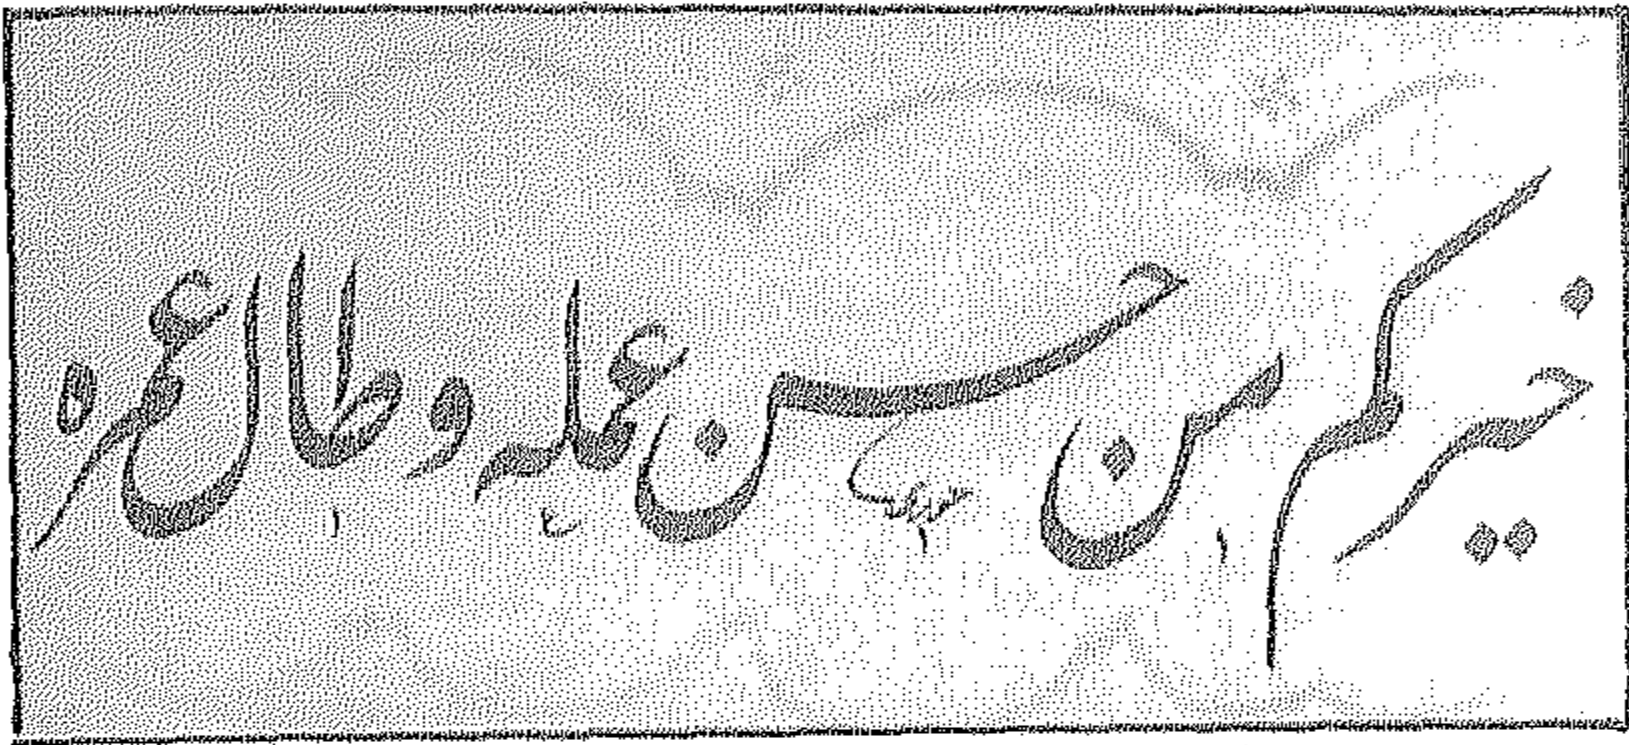 خيركم من حسن عمله وطال عمره